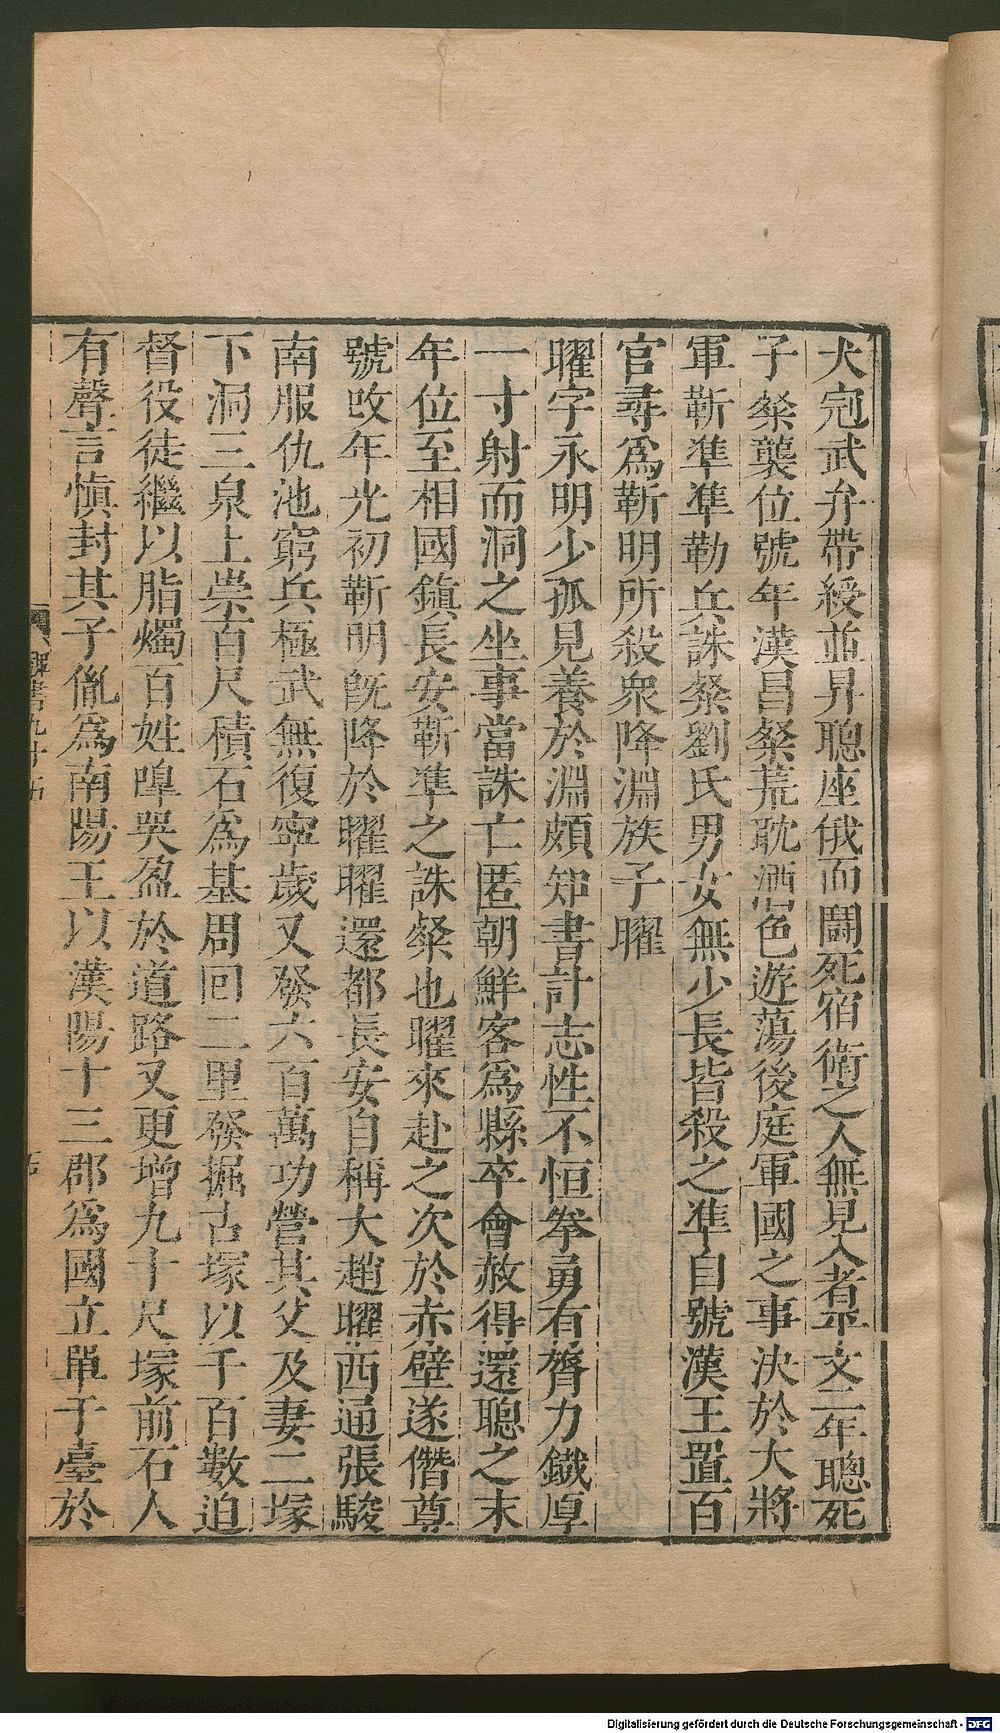 犬冠武弁帶綬並昇聰座俄而鬬死宿衛之人無見入者平文二年聰死
子粲襲位號年漢昌粲荒耽酒色遊蕩後庭軍國之事決於大將
軍靳準準勒兵誅粲劉氏男女無少長皆殺之準自號漢王置百
官尋爲靳明所殺衆降淵族子曜
曜字永明少孤見養於淵頗知書計志性不恒拳勇有膂力鐵厚
一寸射而洞之坐事當誅亡匿朝鮮客爲縣卒會赦得還聰之末
年位至相國鎮長安靳準之誅粲也曜來赴之次於赤壁遂僭尊
號改年光初靳明旣降於曜曜還都長安自稱大趙曜西通張駿
南服仇池窮兵極武無復寧歲又發六百萬功營其父及妻二塚
下洞三泉上崇百尺積石爲基周回二里發掘古塚以千百數迫
督役徒繼以脂燭百姓嘷哭盈於道路又更增九十尺塚前石人
有聲言慎封其子胤爲南陽王以漢陽十三郡爲國立單于臺於
九十五